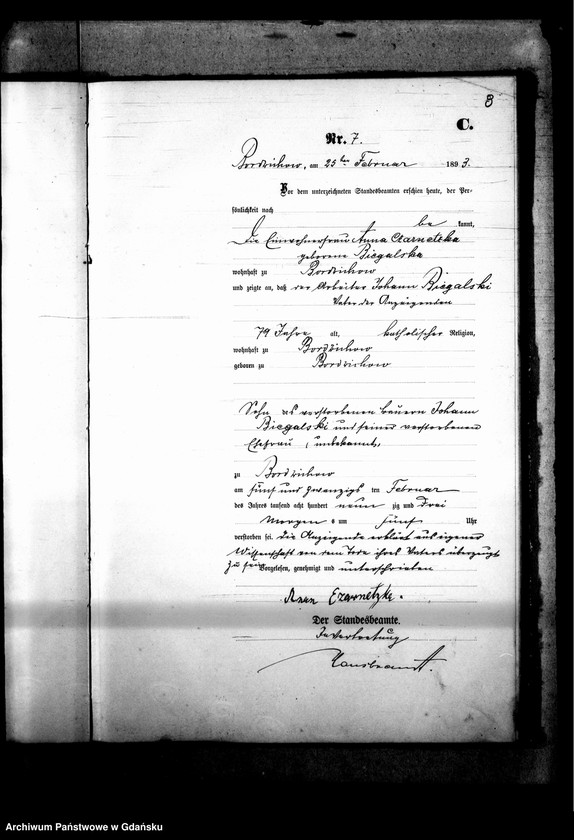 8
C.
Nr. 7.
Bordzichow, am 25ten Februar 1893.
Vor dem unterzeichneten Standesbeamten erschien heute, der Per-
sönlichkeit nach
be kannt,
die Einwohnerfrau Anna Czarnetzka
geborene Biegalska
wohnhaft zu Bordzichow
und zeigte an, daß der Arbeiter Johann Biegalski
Vater der Anzeigenden
79 Jahre alt, katholischer Religion,
wohnhaft zu Bordzichow
geboren zu Bordzichow
Sohn des verstorbenen Bauern Johann
Biegalski und seiner verstorbenen
Ehefrau (unbekannt)
zu Bordzichow
am fünf und zwanzigs ten Februar
des Jahres tausend acht hundert neun zig und Drei
Morgen s um fünf Uhr
verstorben sei. Die Anzeigende erklärt aus eigener
Wissenschaft von dem Tode ihres Vaters überzeugt
zu sein
Vorgelesen, genehmigt und unterschrieben
Anna Czarnetzka.
Der Standesbeamte.
In Vertretung
Archiwum Państwowe w Gdańsku